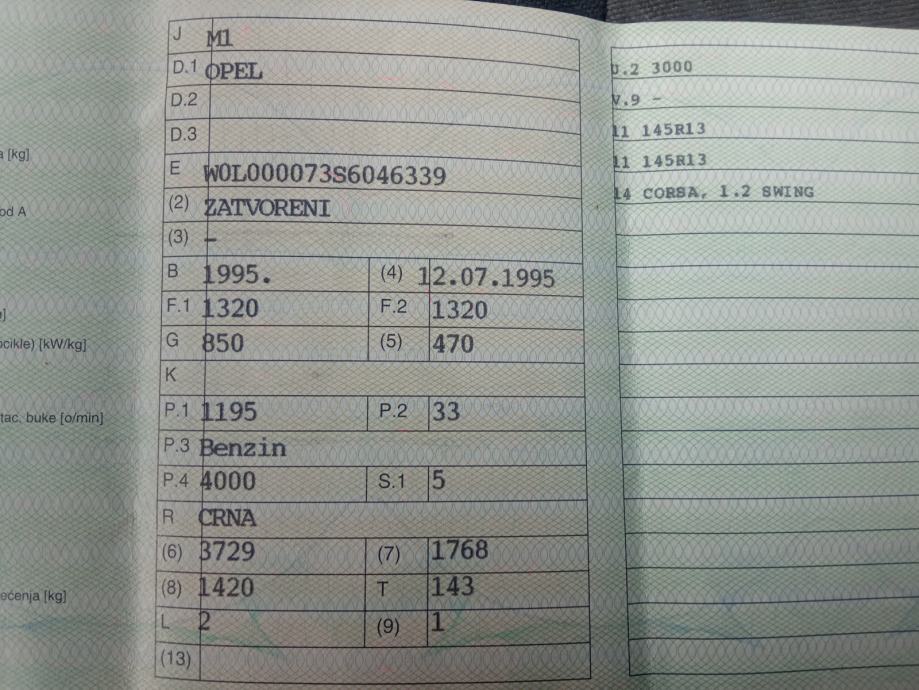 a [kg]
od A
e]
ocikle) [kW/kg]
tac. buke [o/min]
ećenja [kg]
J M1
D.1 OPEL
D.2
D.3
E W0L000073S6046339
(2) ZATVORENI
(3) –
B 1995. (4) 12.07.1995
F.1 1320 F.2 1320
G 850 (5) 470
K
P.1 1195 P.2 33
P.3 Benzin
P.4 4000 S.1 5
R CRNA
(6) 3729 (7) 1768
(8) 1420 T 143
L 2 (9) 1
(13)
U.2 3000
V.9 –
11 145R13
11 145R13
14 CORSA, 1.2 SWING